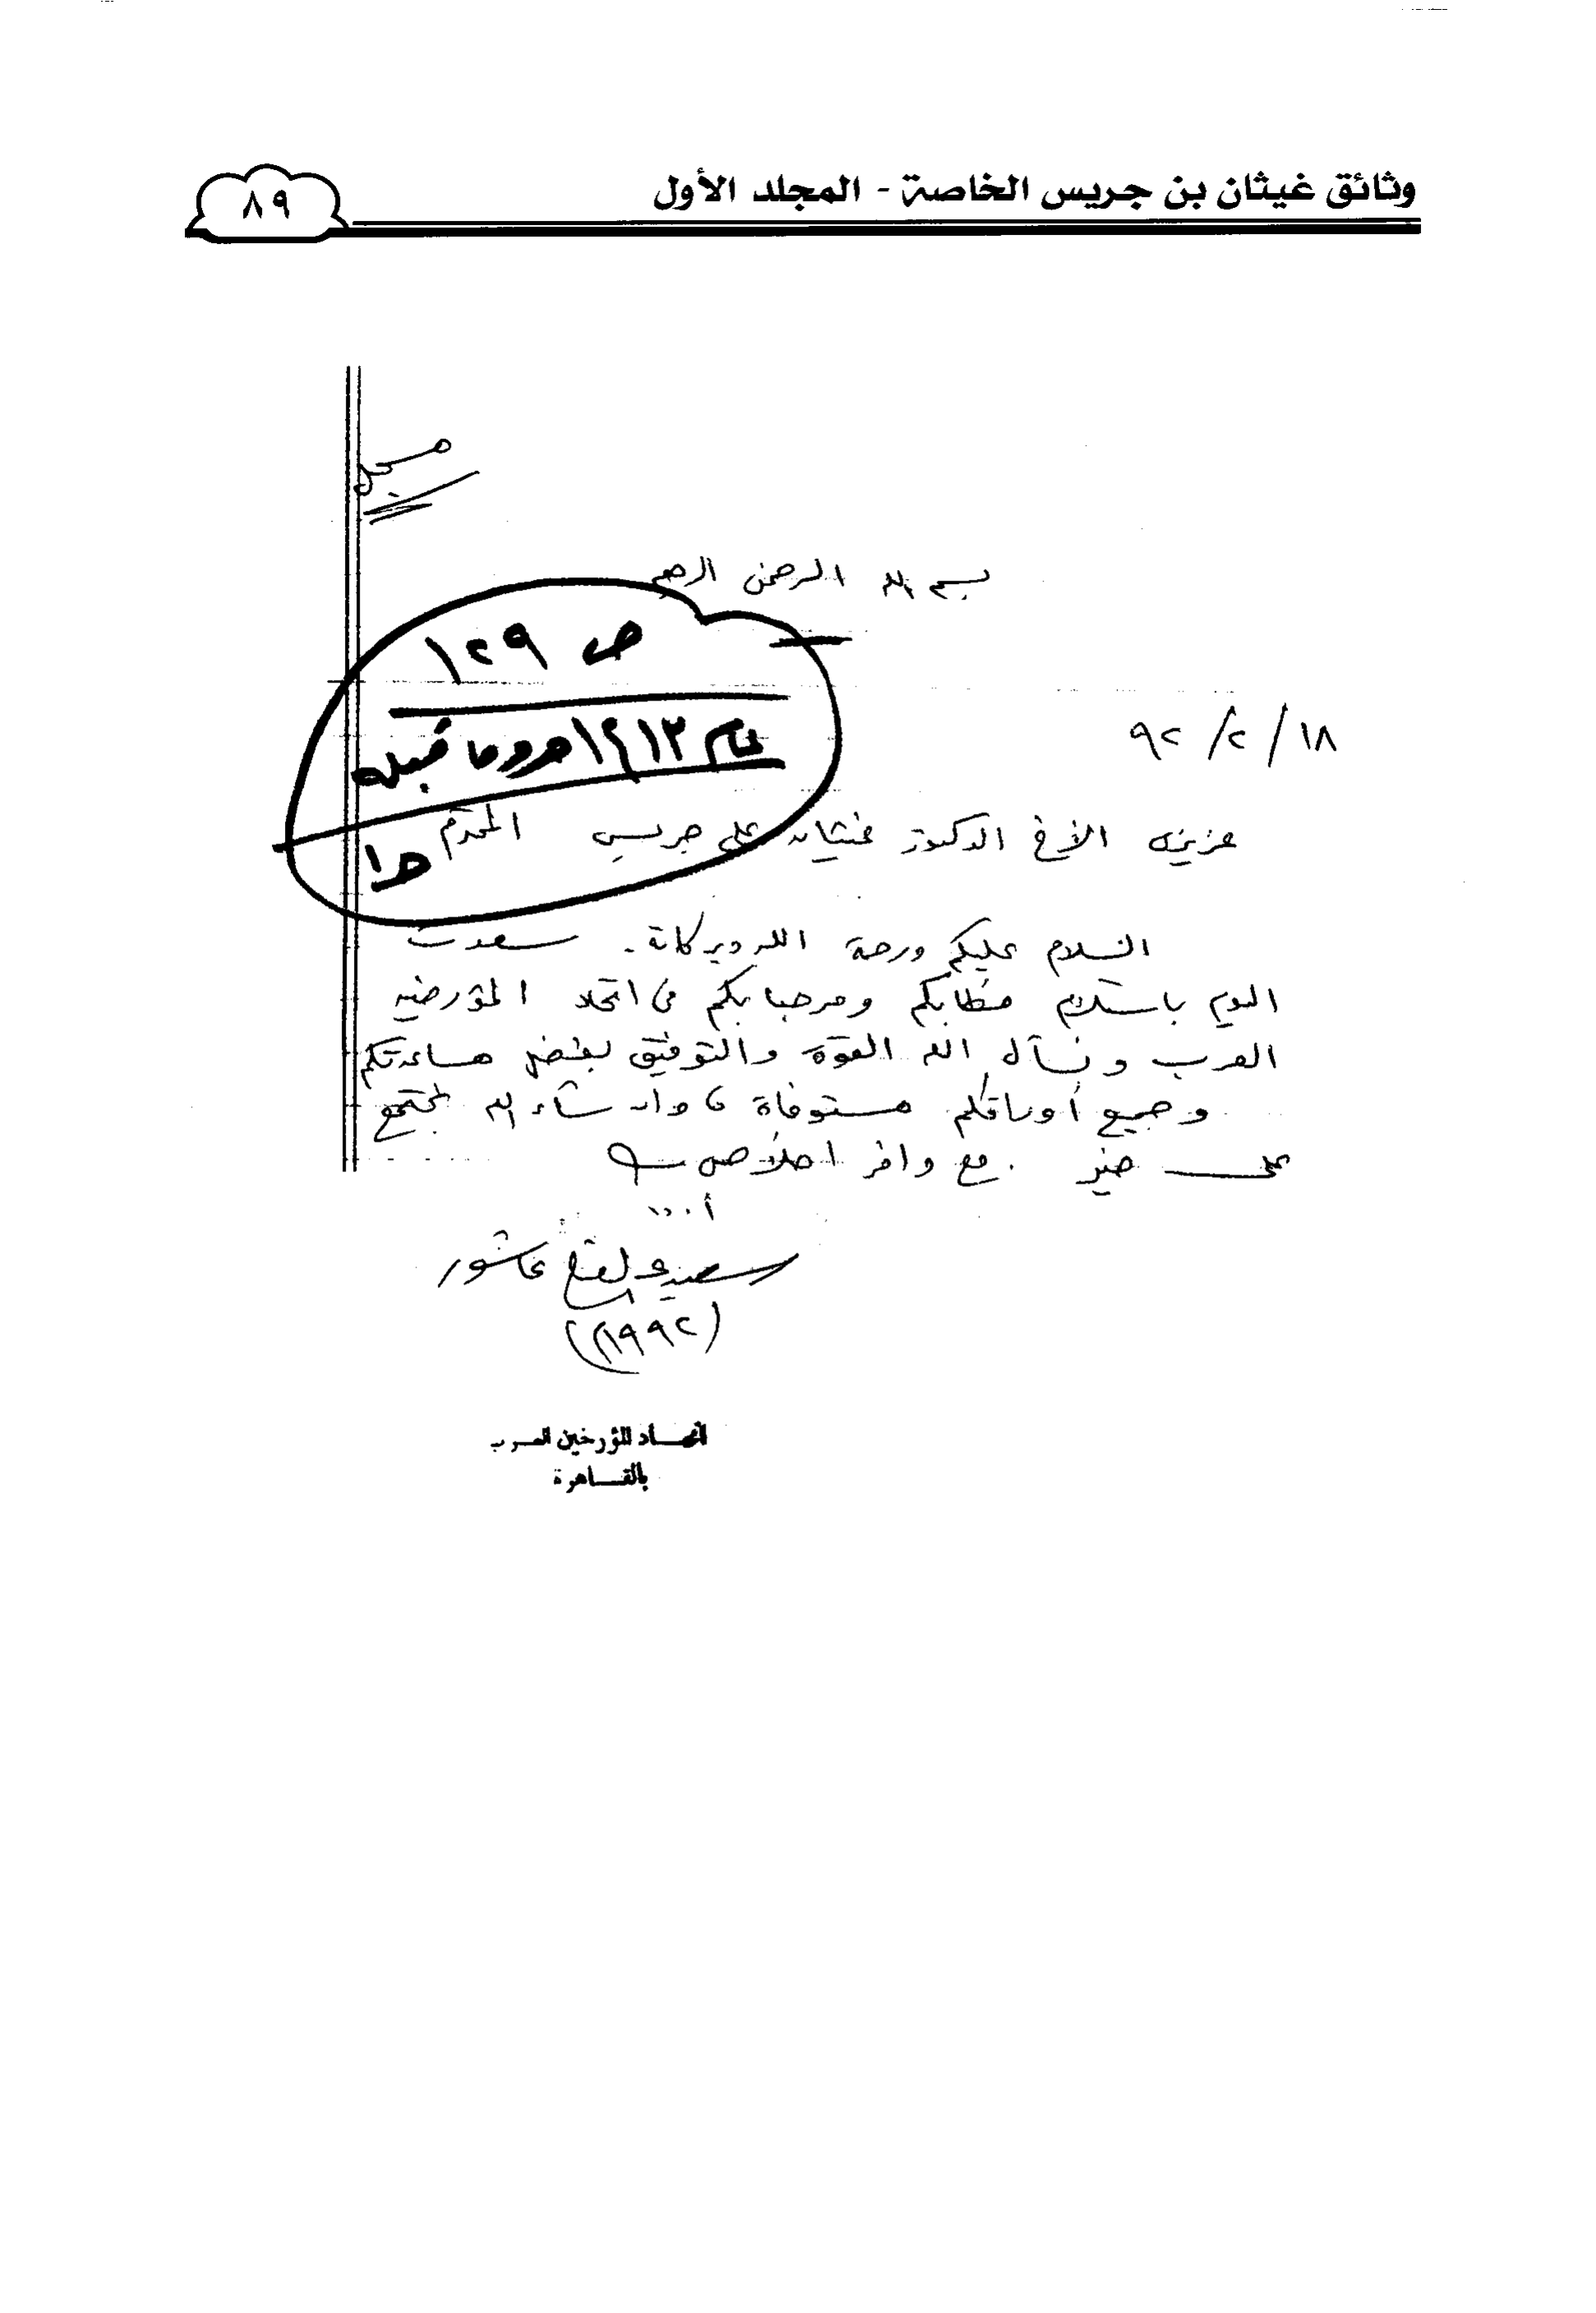 وثائق غيثان بن جريس الخاصة - المجلد الأول
٨٩
مسجل
بسم الله الرحمن الرحيم
ص ١٢٩
عام ١٤١٣هـ وما قبله
١٨/٢/٩٢
عزيزى الأخ الدكتور غيثان على جريس المحترم
السلام عليكم ورحمة الله وبركاته. سعدت
اليوم باستلام خطابكم ومرحبا بكم فى اتحاد المؤرخين
العرب ونسأل الله القوة والتوفيق بفضل مساعدتكم
وجميع أوراقكم مستوفاة، وان شاء الله نجتمع
على خير. مع وافر اخلاصى
سعيد عبد الفتاح عاشور
(١٩٩٢م)
اتحاد المؤرخين العرب
بالقاهرة